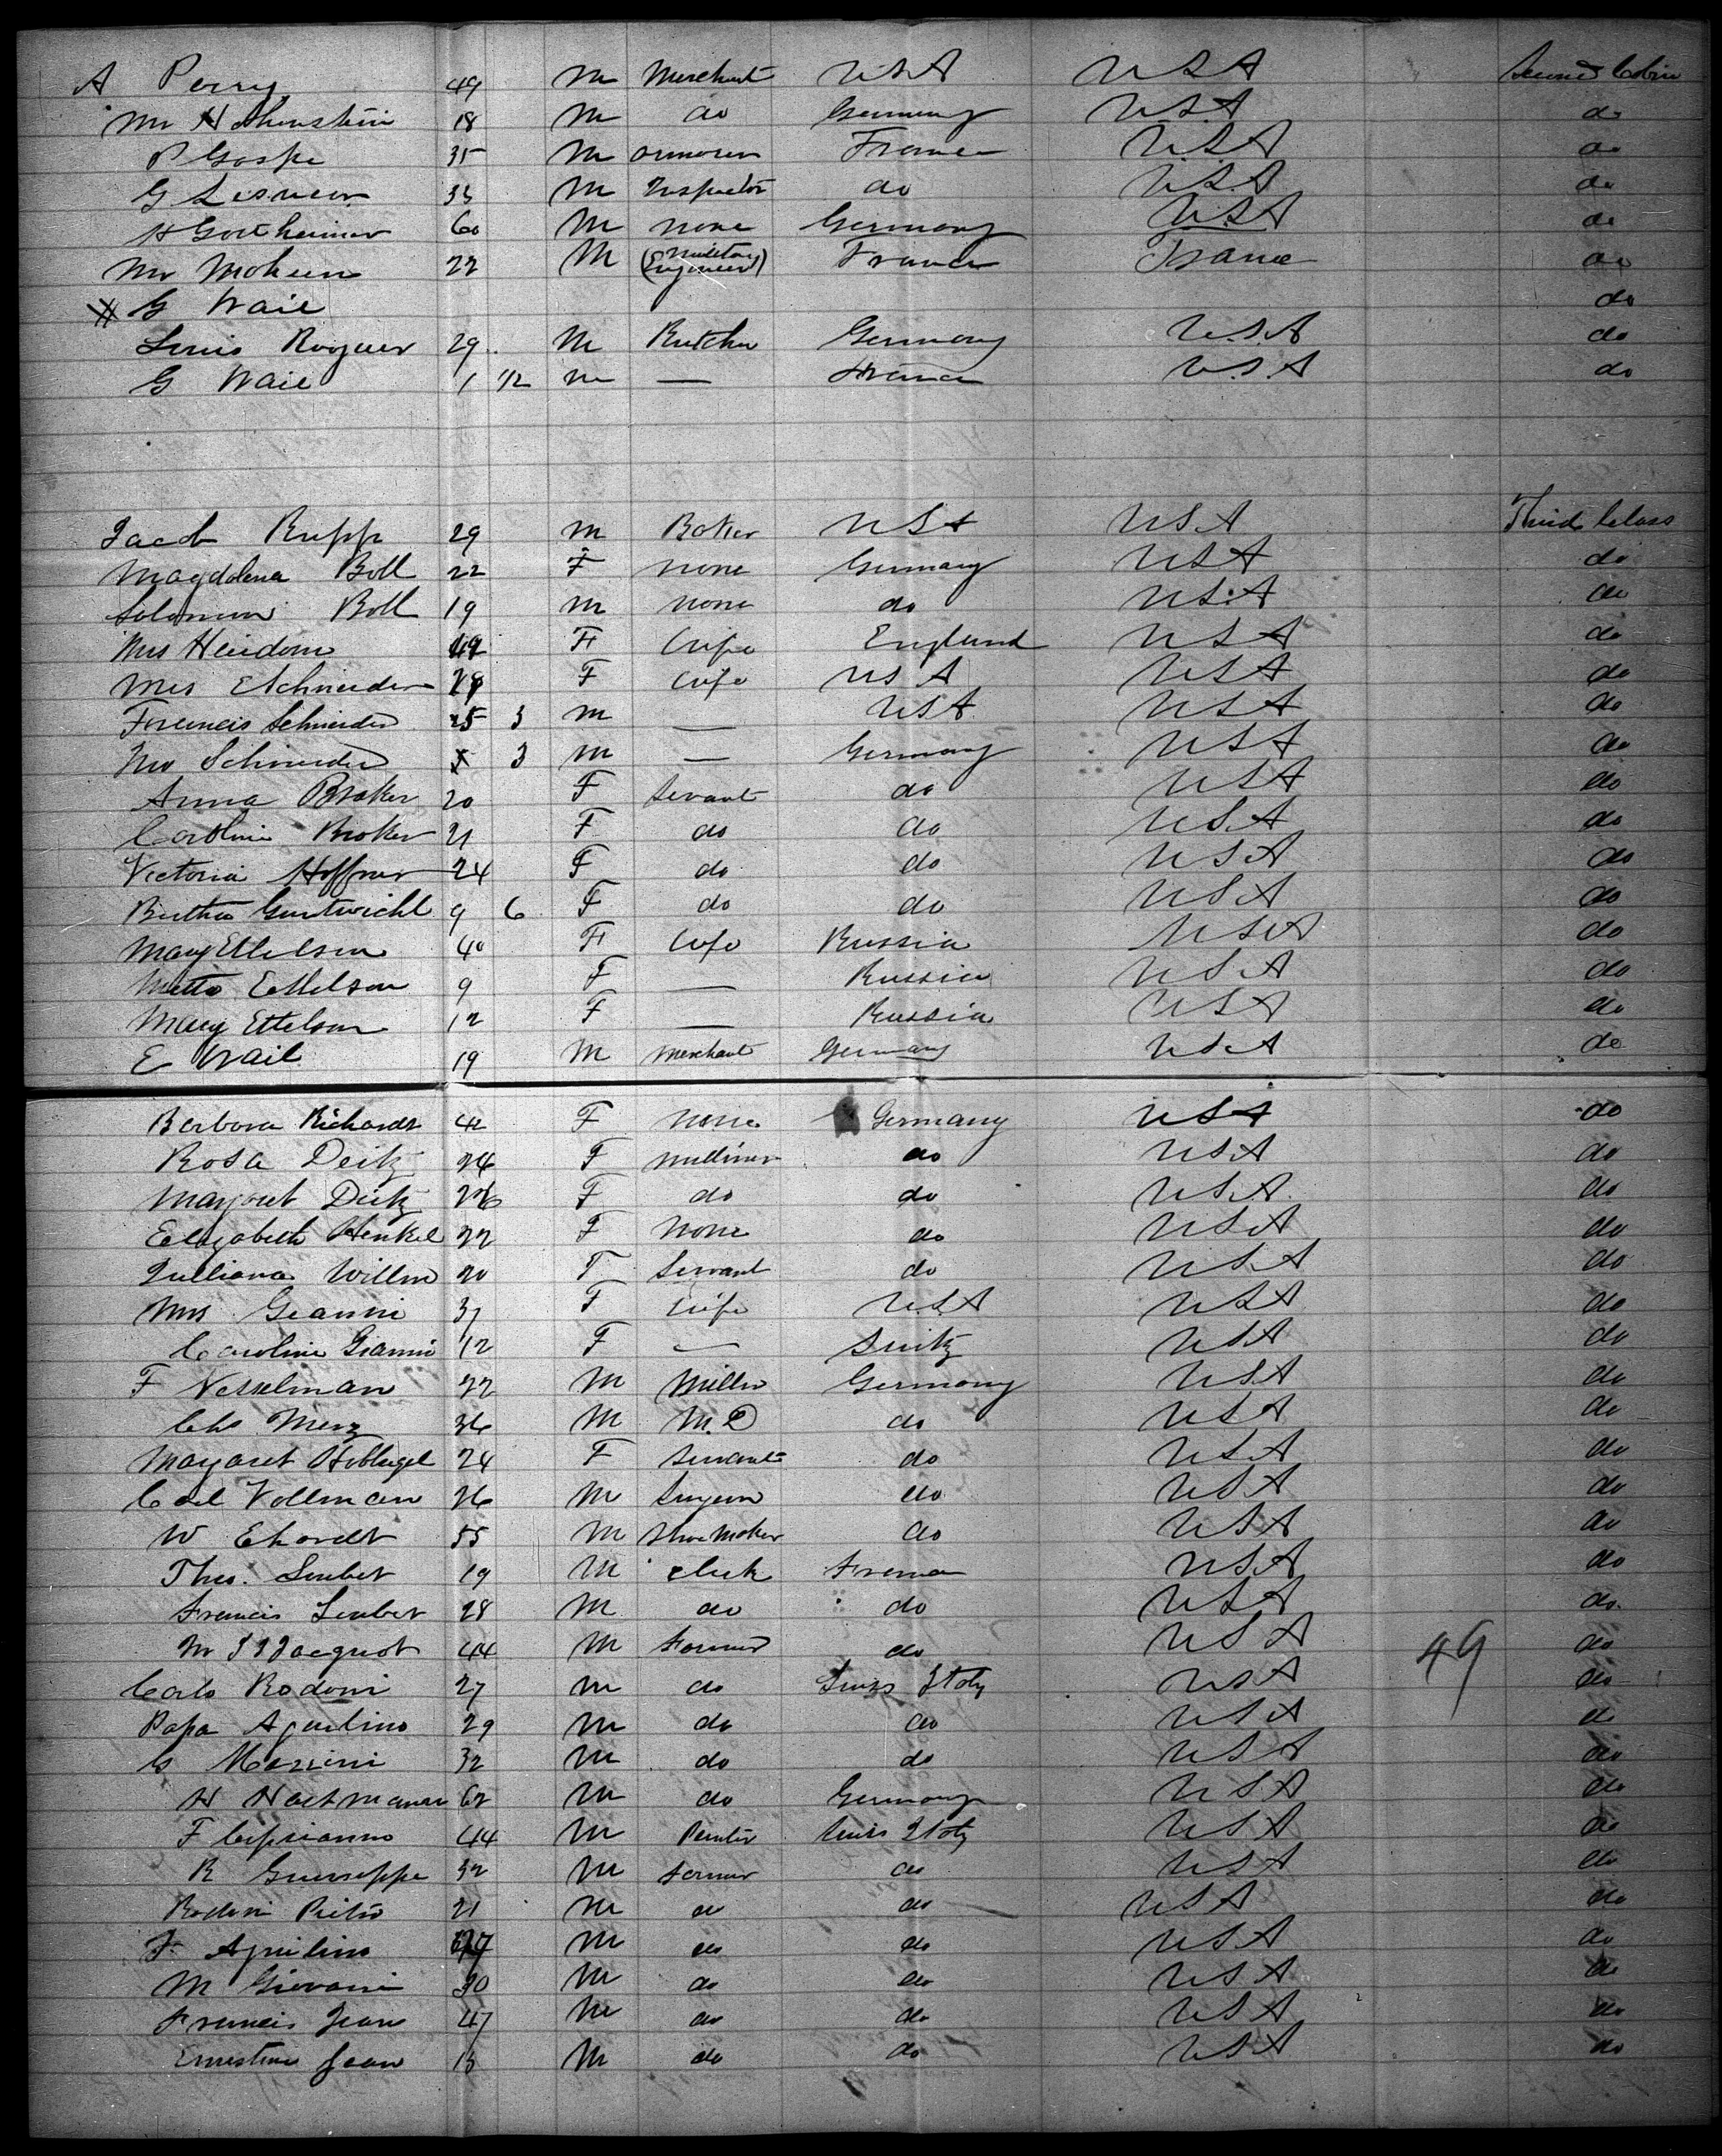 A Perry 49 M Merchant USA USA Second Cabin
Mr Hohenstein 18 M do Germany USA do
P Gaspe 35 M France USA do
G 33 M Inspector do USA do
H Gortheimer 60 M none Germany USA do
Mr 22 M (Military Engineer) France France do
G Wail do
Louis 29 M Butcher Germany USA do
G Wail 1 1/2 M — France U.S.A do
Jacob Rupp 29 M Baker USA USA Third Class
Magdalena Boll 22 F none Germany USA do
Solomon Boll 19 M none do USA do
Mrs Heidorn F Wife England USA do
Mrs E Schneider F Wife USA USA do
Francis Schneider 3 M — USA USA do
Schneider 3 M — Germany USA do
Anna Broker 20 F Servant do USA do
Caroline Broker 21 F do do USA do
Victoria Hoffner 24 F do do USA do
Bertha 9 6 F do do USA do
Mary Ettelson 40 F Wife Russia USA do
Ettelson 9 F — Russia USA do
Mary Ettelson 12 F — Russia USA do
E Wail 19 M Merchant Germany USA do
Barbara Richards 42 F none Germany USA do
Rosa Deitz 24 F milliner do USA do
Margaret Deitz F do do USA do
Elizabeth Henkel 22 F None do USA do
Julliana Willm 20 F Servant do USA do
Mrs Gianni 37 F Wife U.S.A USA do
Caroline Gianni 12 F — Switz USA do
F Nesselman 22 M Miller Germany USA do
Chs Merz 26 M M.D do USA do
Margaret 24 F Servant do USA do
Carl Vollman 26 M Surgeon do USA do
W Ehardt 55 M Shoemaker do USA do
Theo. Loubet 19 M clerk France USA do
Francis Loubet 28 M do do USA do
M Jacquot 44 M Farmer do USA 49 do
Carlo Rodoni 27 M do Swiss Italy USA do
Papa Aquilino 29 M do do USA do
G Mazzini 32 M do do USA do
H Hartmann 62 M do Germany USA do
F Ciprianno 44 M Painter Swiss Italy USA do
R Giuseppe 32 M Farmer do USA do
Rodoni Pietro 21 M do do USA do
F. Aquilino M do do USA do
M Giovani 30 M do do USA do
Francis Jean 47 M do do USA do
Ernestine Jean 13 M do do USA do